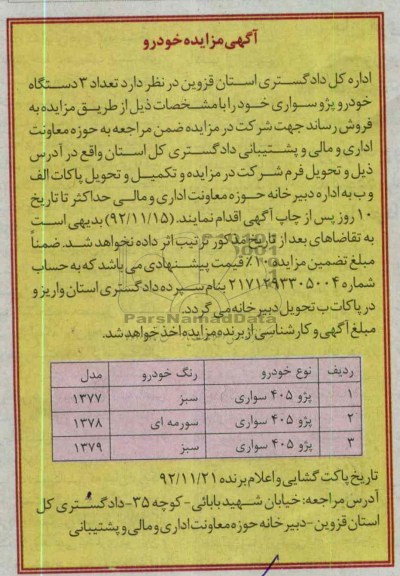 آگهی مزایده خودرو
اداره کل دادگستری استان قزوین در نظر دارد تعداد ۳ دستگاه
خودرو پژو سواری خود را با مشخصات ذیل از طریق مزایده به
فروش رساند جهت شرکت در مزایده ضمن مراجعه به حوزه معاونت
اداری و مالی و پشتیبانی دادگستری کل استان واقع در آدرس
ذیل و تحویل فرم شرکت در مزایده و تکمیل و تحویل پاکات الف
و ب به اداره دبیرخانه حوزه معاونت اداری و مالی حداکثر تا تاریخ
۱۰ روز پس از چاپ آگهی اقدام نمایند. (۹۲/۱۱/۱۵) بدیهی است
به تقاضاهای بعد از تاریخ مذکور ترتیب اثر داده نخواهد شد. ضمناً
مبلغ تضمین مزایده ۱۰٪ قیمت پیشنهادی می باشد که به حساب
شماره ۲۱۷۱۲۹۳۳۰۵۰۰۴ بنام سپرده دادگستری استان واریز و
در پاکات ب تحویل دبیرخانه می گردد.
ParsNamadData
مبلغ آگهی و کارشناسی از برنده مزایده اخذ خواهد شد.
ردیف نوع خودرو رنگ خودرو مدل
۱ پژو ۴۰۵ سواری سبز ۱۳۷۷
۲ پژو ۴۰۵ سواری سورمه ای ۱۳۷۸
۳ پژو ۴۰۵ سواری سبز ۱۳۷۹
تاریخ پاکت گشایی و اعلام برنده ۹۲/۱۱/۲۱
آدرس مراجعه: خیابان شهید بابائی - کوچه ۳۵ - دادگستری کل
استان قزوین - دبیرخانه حوزه معاونت اداری و مالی و پشتیبانی